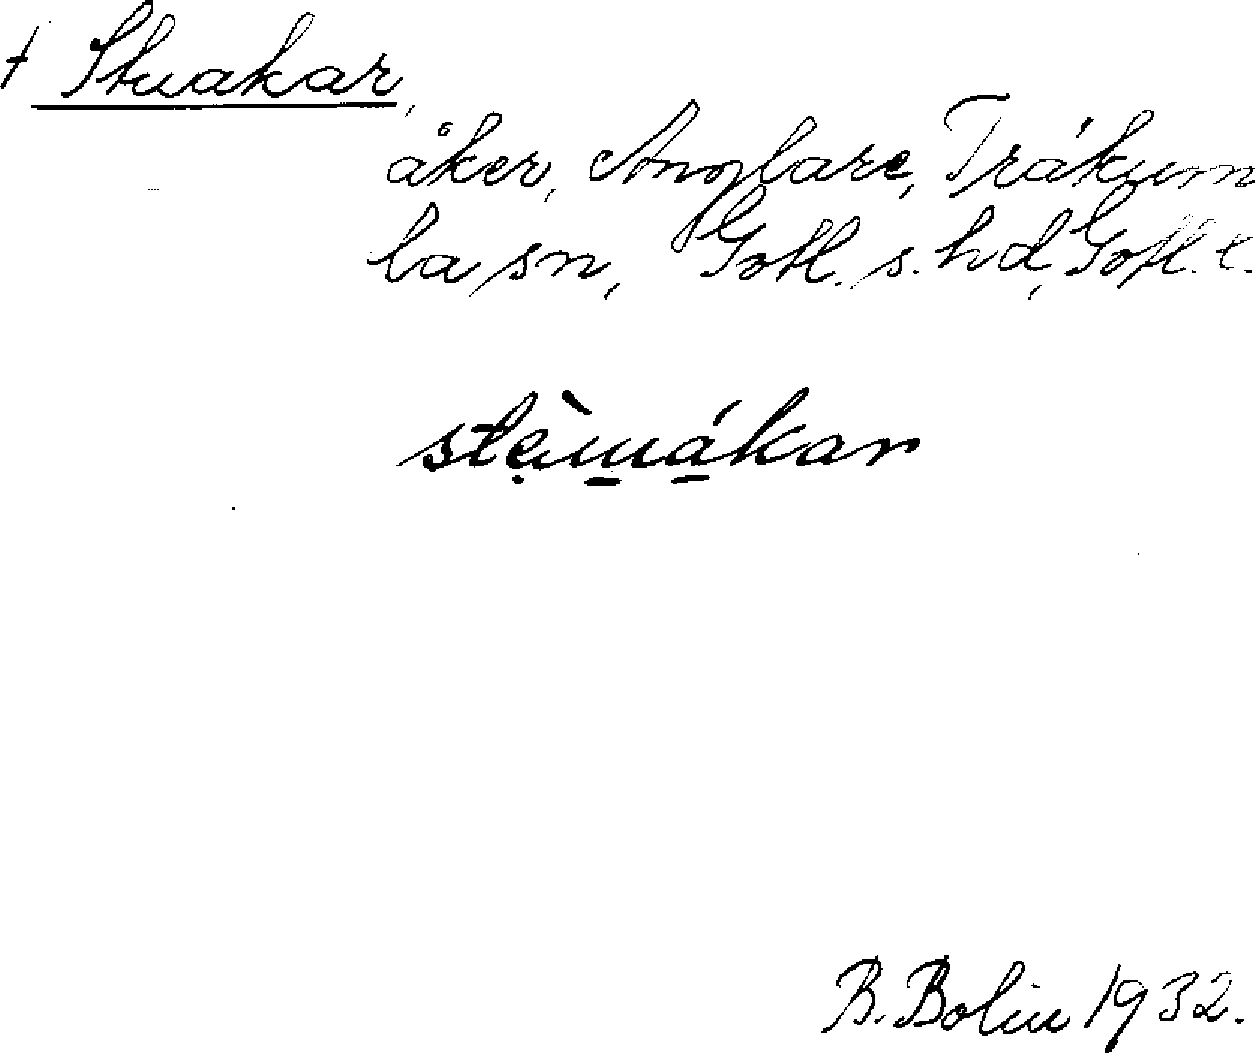 † Stuakar,
åker, Anglare, Träkum
la sn, Gotl. s. hd, Gotl. l.
R. Bolin 1932.